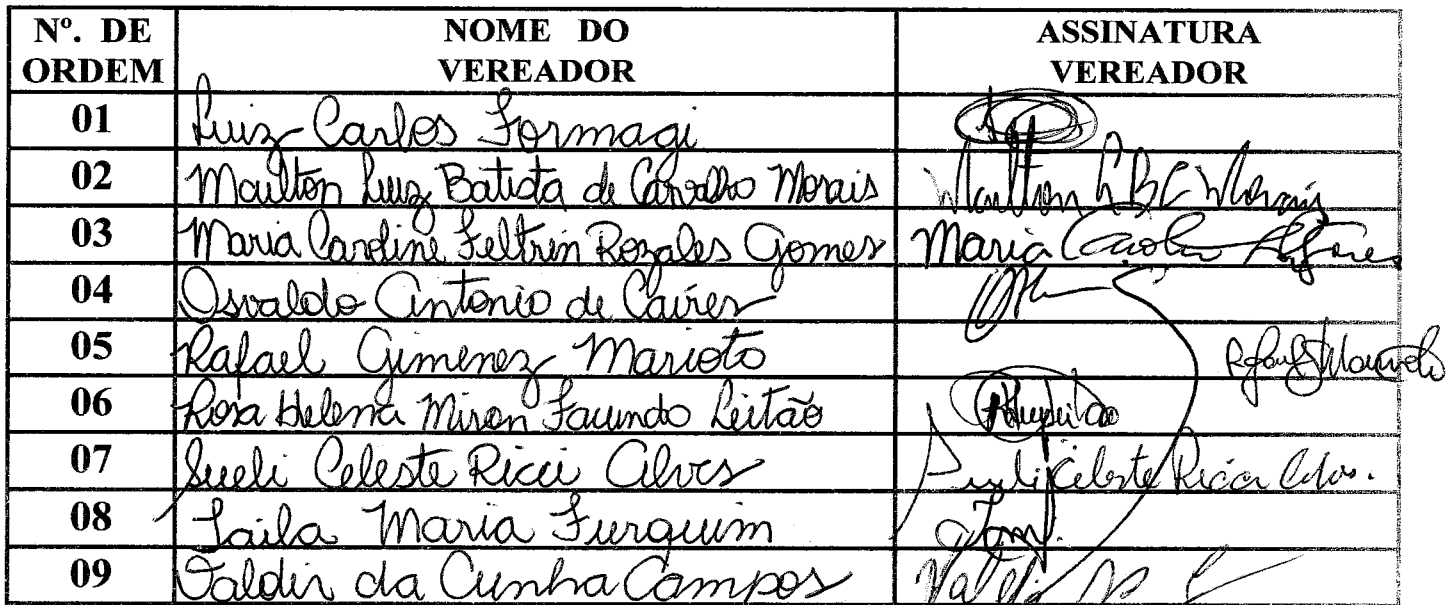 Nº. DE ORDEM NOME DO VEREADOR ASSINATURA VEREADOR
01 Luiz Carlos Formagi
02 Mailton Luiz Batista de Carvalho Morais Mailton L B C Morais
03 Maria Caroline Feltrin Rozales Gomes Maria
04 Osvaldo Antonio de Caires
05 Rafael Gimenez Marioto
06 Rosa Helena Miron Facundo Leitão
07 Sueli Celeste Ricci Alves Sueli Celeste Ricci Alves.
08 Laila Maria Furquim
09 Valdir da Cunha Campos